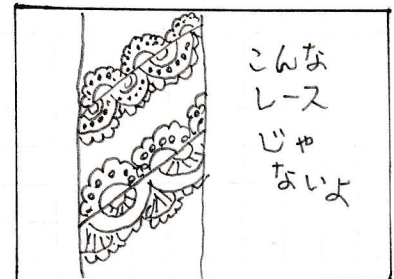 こんな
レース
じゃ
ないよ